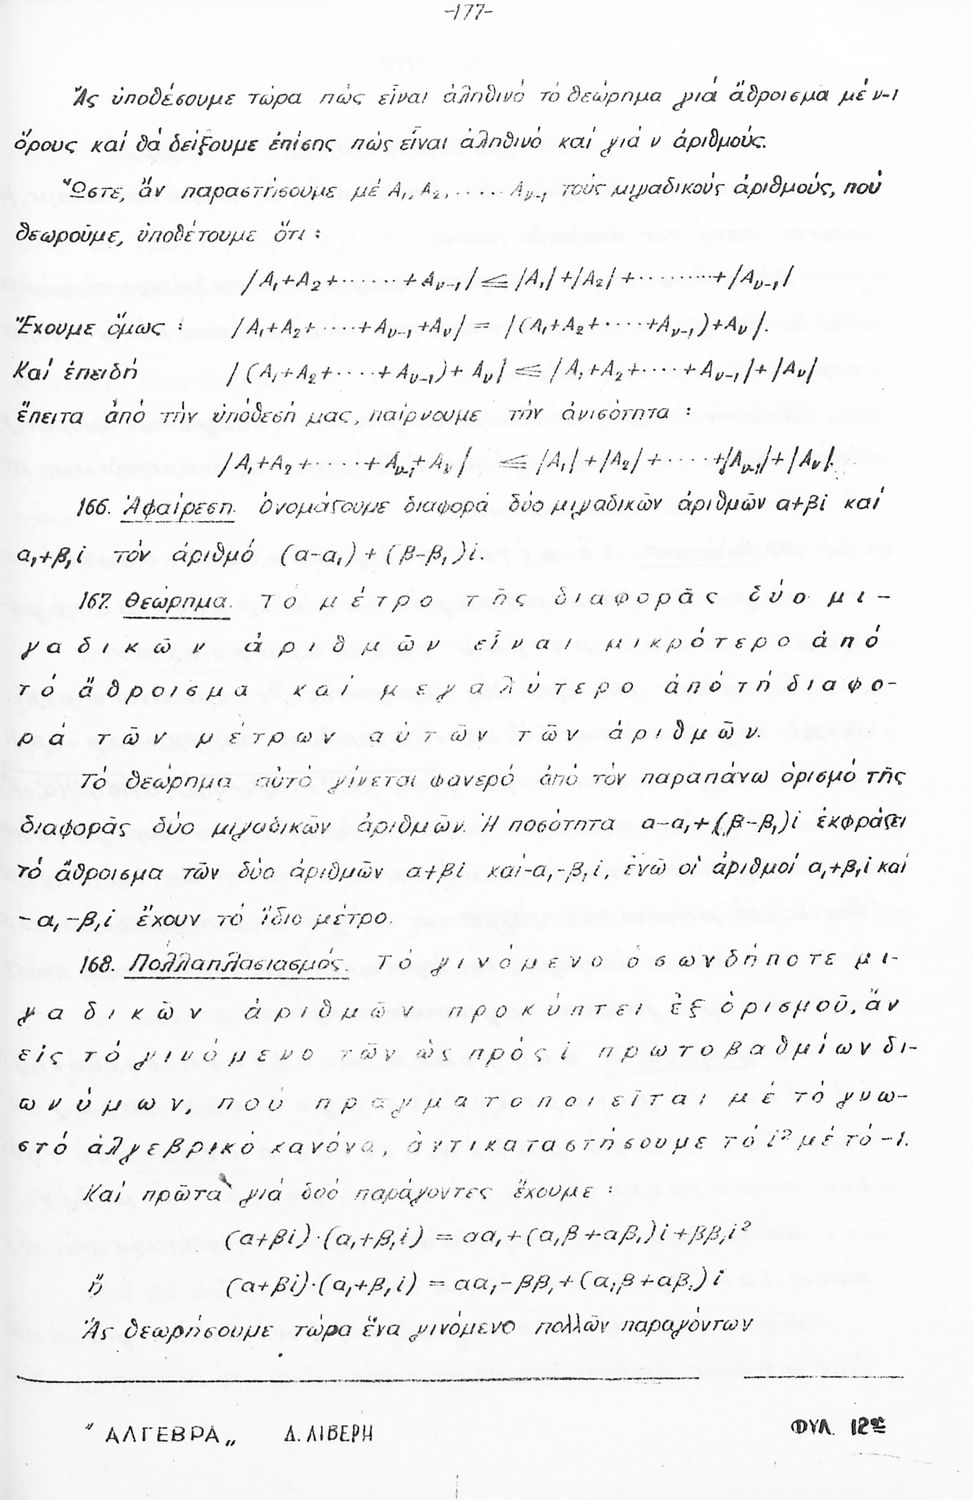 -177-
Ἄς ὑποθέσουμε τώρα πώς εἶναι ἀληθινό τό θεώρημα γιά ἄθροισμα μέ ν-1
ὅρους καί θά δείξουμε ἐπίσης πώς εἶναι ἀληθινό καί γιά ν ἀριθμούς.
Ὥστε, ἄν παραστήσουμε μέ Α₁, Α₂, ..... Αν-₁ τούς μιγαδικούς ἀριθμούς, πού
θεωροῦμε, ὑποθέτουμε ὅτι :
|Α₁+Α₂+.......+Αν-₁| ≤ |Α₁|+|Α₂|+.........+|Αν-₁|
Ἔχουμε ὅμως : |Α₁+Α₂+.....+Αν-₁+Αν| = |(Α₁+Α₂+.....+Αν-₁)+Αν|.
Καί ἐπειδή |(Α₁+Α₂+.....+Αν-₁)+Αν| ≤ |Α₁+Α₂+.....+Αν-₁|+|Αν|
ἔπειτα ἀπό τήν ὑπόθεσή μας, παίρνουμε τήν ἀνισότητα :
|Α₁+Α₂+.....+Αν-₁+Αν| ≤ |Α₁|+|Α₂|+.....+|Αν-₁|+|Αν|.
166. Ἀφαίρεση. Ὀνομάζουμε διαφορά δύο μιγαδικῶν ἀριθμῶν α+βi καί
α₁+β₁i τόν ἀριθμό (α-α₁)+(β-β₁)i.
167. Θεώρημα. Τό μέτρο τῆς διαφορᾶς δύο μι-
γαδικῶν ἀριθμῶν εἶναι μικρότερο ἀπό
τό ἄθροισμα καί μεγαλύτερο ἀπό τή διαφο-
ρά τῶν μέτρων αὐτῶν τῶν ἀριθμῶν.
Τό θεώρημα αὐτό γίνεται φανερό ἀπό τόν παραπάνω ὁρισμό τῆς
διαφορᾶς δύο μιγαδικῶν ἀριθμῶν. Ἡ ποσότητα α-α₁+(β-β₁)i ἐκφράζει
τό ἄθροισμα τῶν δύο ἀριθμῶν α+βi καί-α₁-β₁i, ἐνῶ οἱ ἀριθμοί α₁+β₁i καί
-α₁-β₁i ἔχουν τό ἴδιο μέτρο.
168. Πολλαπλασιασμός. Τό γινόμενο ὁσωνδήποτε μι-
γαδικῶν ἀριθμῶν προκύπτει ἐξ ὁρισμοῦ, ἄν
εἰς τό γινόμενο τῶν ὡς πρός i πρωτοβαθμίων δι-
ωνύμων, πού πραγματοποιεῖται μέ τό γνω-
στό ἀλγεβρικό κανόνα, ἀντικαταστήσουμε τό i² μέ τό -1.
Καί πρῶτα γιά δυό παράγοντες ἔχουμε :
(α+βi)·(α₁+β₁i) = αα₁+(α₁β+αβ₁)i+ββ₁i²
ἤ (α+βi)·(α₁+β₁i) = αα₁-ββ₁+(α₁β+αβ₁)i
Ἄς θεωρήσουμε τώρα ἕνα γινόμενο πολλῶν παραγόντων
"ΑΛΓΕΒΡΑ„ Δ. ΛΙΒΕΡΗ ΦΥΛ. 12ον